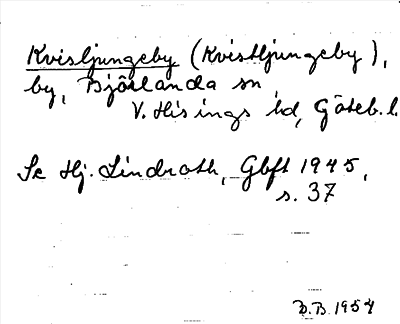 Kvisljungeby (Kvistljungeby),
by, Björlanda sn
V. Hisings hd, Göteb. l.
Se Hj. Lindroth, Gbft 1945,
s. 37
D.B. 1954